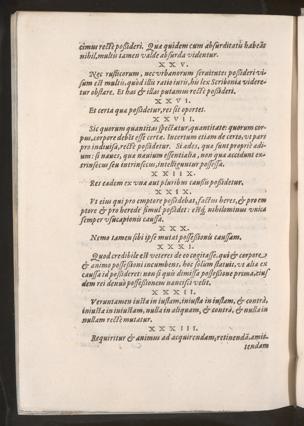 cimus rectè possideri. Qua quidem cum absurditatis habeãt
nihil, multis tamen valde absurda videntur.
XXV.
Nec rusticorum, nec vrbanorum seruitutes possideri vi-
sum est multis, quòd illis ratio iuris, his lex Scribonia videre-
tur obstare. Et has & illas putamus rectè possideri.
XXVI.
Et certa qua possidetur, res sit oportet.
XXVII.
Sic quorum quantitas spectatur, quantitate: quorum cor-
pus, corpore debet esse certa. Incertum etiam de certo, vt pars
pro indiuisa, rectè possidetur. Si ades, qua sunt propriè ad-
ium: si naues, qua nauium essentialia, non qua accidunt ex-
trinsecus seu intrinsecus, intelleguntur possessa.
XXIIX.
Res eadem ex vna aut pluribus caussis possidetur.
XXIX.
Vt eius qui pro emptore possidebas, factus heres, & pro em
ptore & pro herede simul possidet: estq́ nihilominus vnica
semper vsucapionis caussa.
XXX.
Nemo tamen sibi ipse mutat possessionis caussam.
XXXI.
Quod credibile est veteres de eo cogitasse, qui & corpore
& animo possessioni incumbens, hoc solùm statuit, vt alia ex
caussa id possideret: non si quis dimissa possessione prima, eius
dem rei denuò possessionem nancisci velit.
XXXII.
Veruntamen iusta in iustam, iniusta in iustam, & contrà,
iniusta in iniustam, nulla in aliquam, & contrà, & nulla in
nullam rectè mutatur.
XXXIII.
Requiritur & animus ad acquirendam, retinendã, amit-
tendam